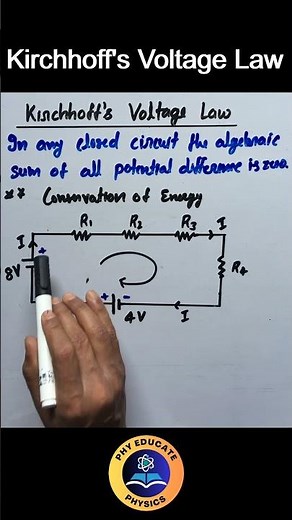 Kirchhoff's Voltage Law
Kirchhoff's Voltage Law
In any closed circuit the algebraic
sum of all potential difference is zero.
** Conservation of Energy
R1 R2 R3 I
I +
8V
R4
+ -
4V I
PHY EDUCATE
PHYSICS